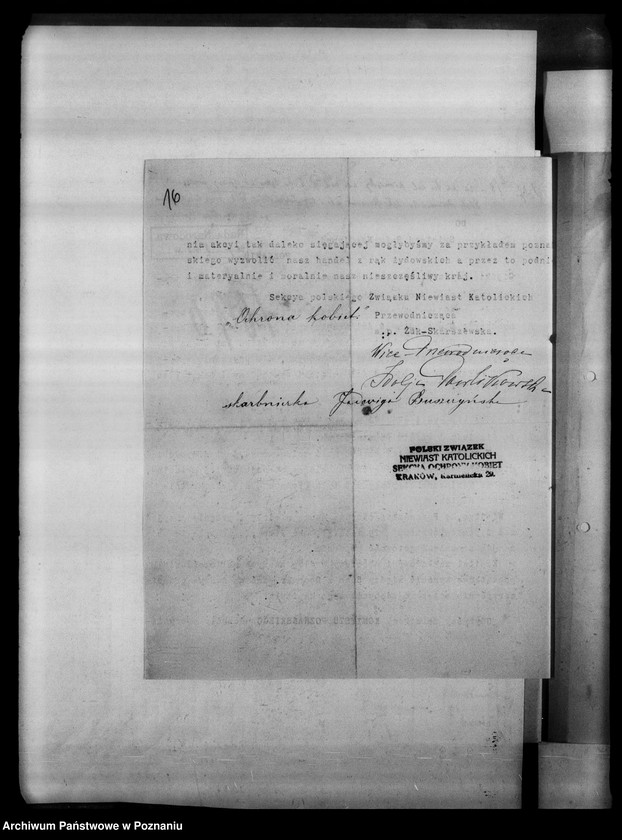 16
nim akcyi tak daleko sięgającej mogłybyśmy za przykładem pozna
skiego wyzwolić nasz handel z rąk żydowskich a przez to podni
i materyalnie i moralnie nasz nieszczęśliwy kraj.
Sekcya polskiego Związku Niewiast Katolickich
„Ochrona kobiet" Przewodnicząca
Żuk-Skarszewska.
Wice-Przewodnicząca
skarbniczka Jadwiga Buszczyńska
POLSKI ZWIĄZEK
NIEWIAST KATOLICKICH
SEKCYA OCHRONY KOBIET
KRAKÓW, Karmelicka 29.
Archiwum Państwowe w Poznaniu